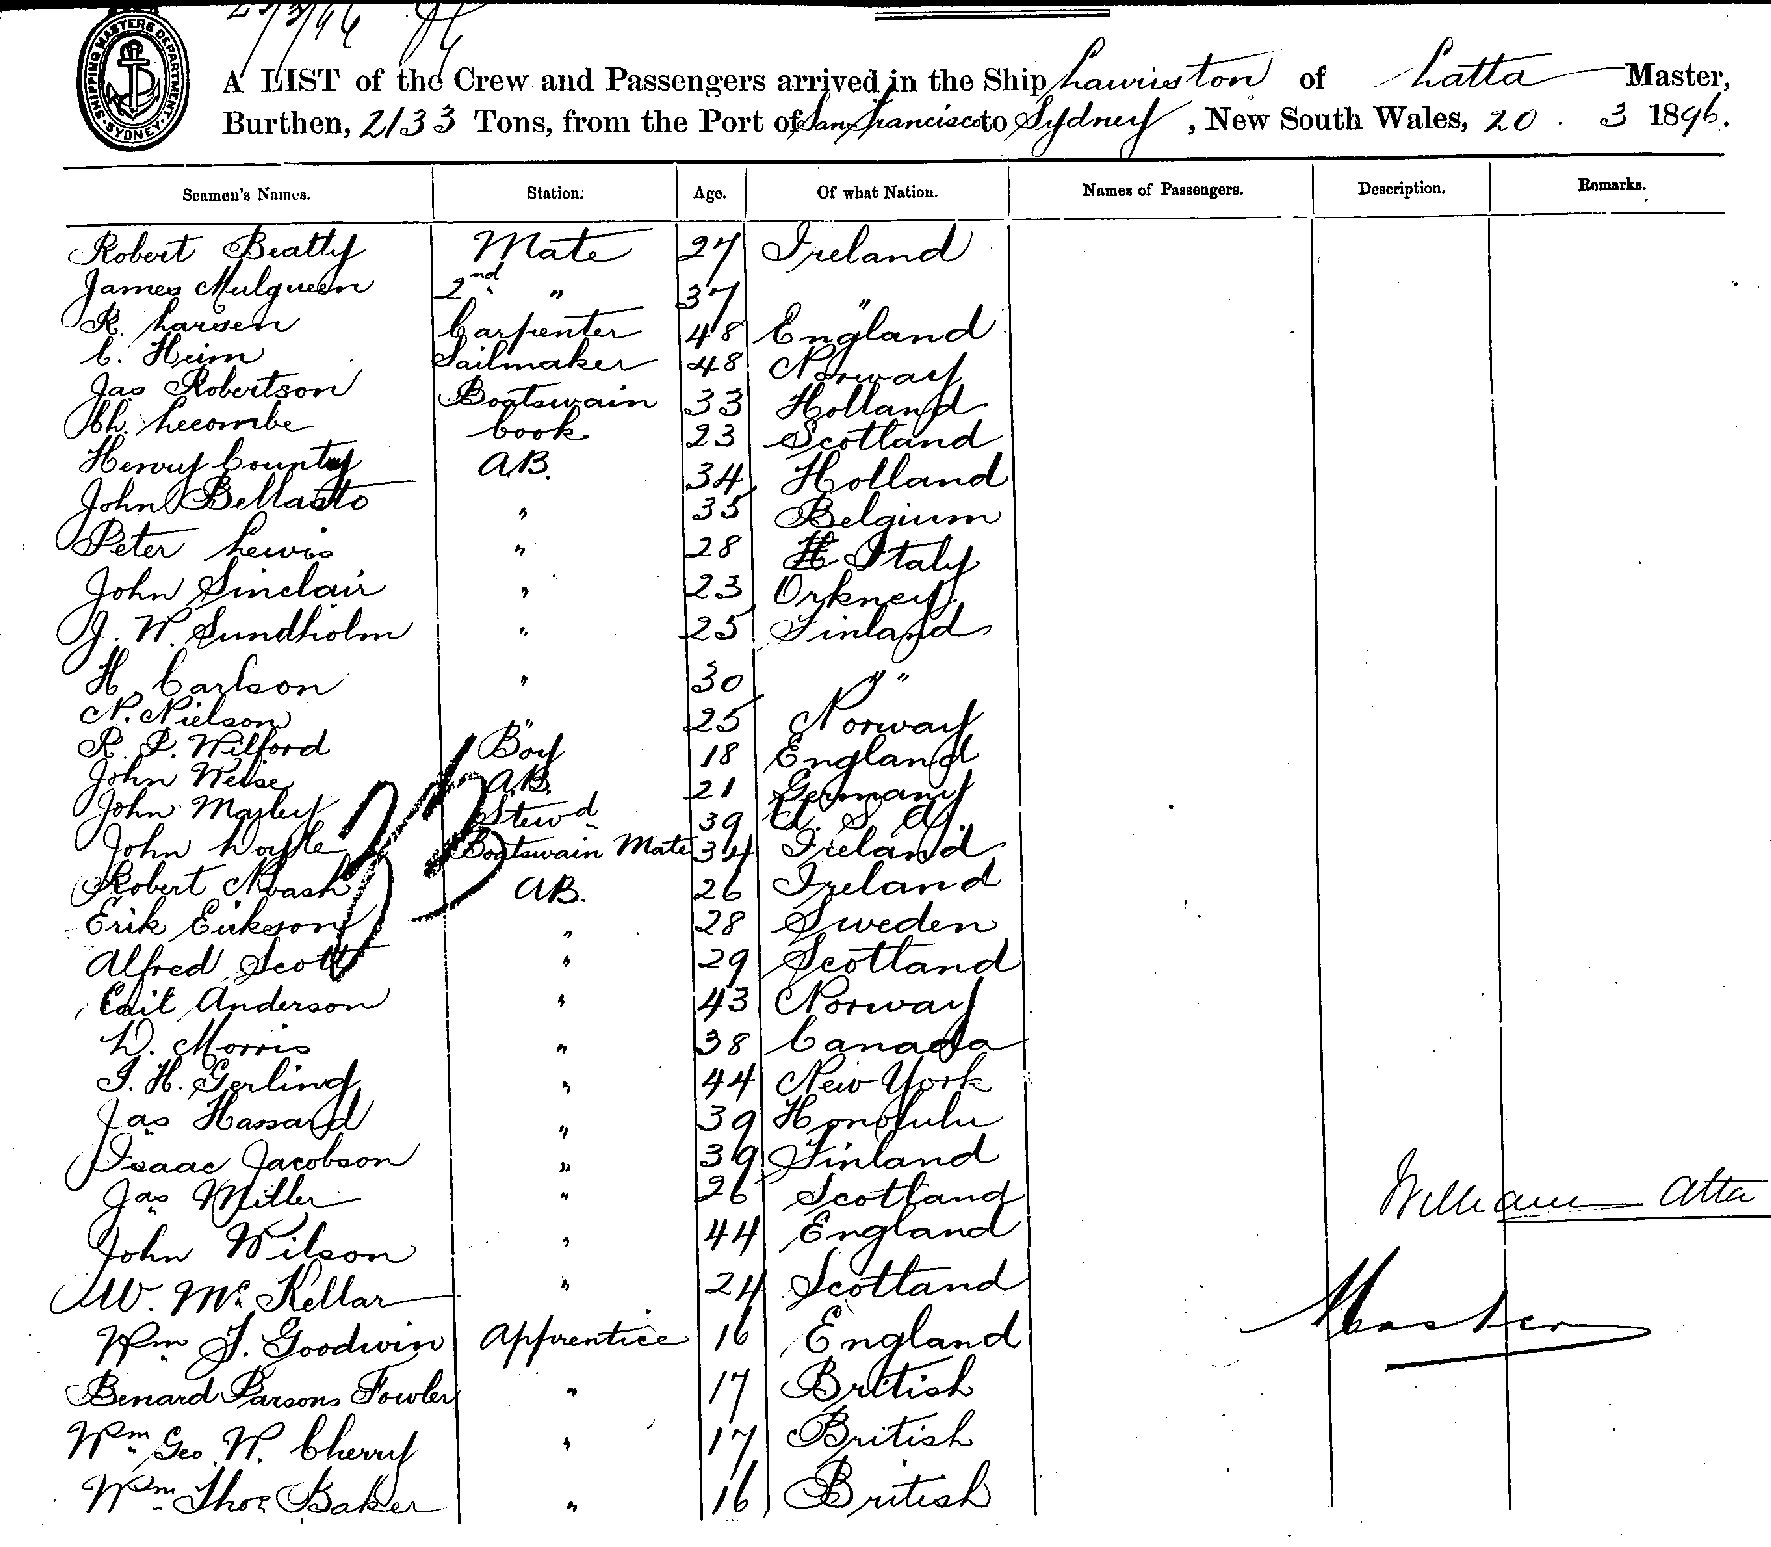 23/3/96
SHIPPING MASTERS DEPARTMENT SYDNEY
A LIST of the Crew and Passengers arrived in the Ship Lawriston of Latta Master,
Burthen, 2133 Tons, from the Port of San Francisco to Sydney, New South Wales, 20 . 3 1896.
Seamen's Names. Station. Age. Of what Nation. Names of Passengers. Description. Remarks.
Robert Beatty Mate 27 Ireland
James Mulqueen 2nd " 37 "
R. Larsen Carpenter 48 England
C. Heim Sailmaker 48 Norway
Jas Robertson Boatswain 33 Holland
Ch. Lecombe Cook 23 Scotland
Henry County AB. 34 Holland
John Bellasto " 35 Belgium
Peter Lewis " 28 Italy
John Sinclair " 23 Orkney
J. W. Sundholm " 25 Finland
H. Carlson " 30 " "
N. Nielson " 25 Norway
R. P. Wilford Boy 18 England
John Weise AB. 21 Germany
John Marley Stewd 39 U. S. A.
John Doyle Boatswain Mate 34 Ireland
Robert Nash AB. 26 Ireland
33
Erik Erikson " 28 Sweden
Alfred Scott " 29 Scotland
Anderson " 43 Norway
D. Morris " 38 Canada
J. H. Gerling " 44 New York
Jas Hassard " 39 Honolulu
Isaac Jacobson " 39 Finland
Jas Miller " 26 Scotland
William Latta
John Wilson " 44 England
W. McKellar " 24 Scotland
Master
Wm J. Goodwin Apprentice 16 England
Benard Parsons Fowler " 17 British
Wm Geo. W. Cherry " 17 British
Wm Thos Baker " 16 British